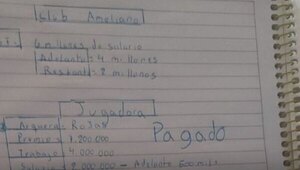 Club Ameliano
6 millones de salario
Adelanto = 4 millones
Restante = 2 millones
Jugadora
Arquera = Rojas
Pagado
Premio = 1.200.000
Trabajo = 4.000.000
2.000.000 - Adelanto 600 mil